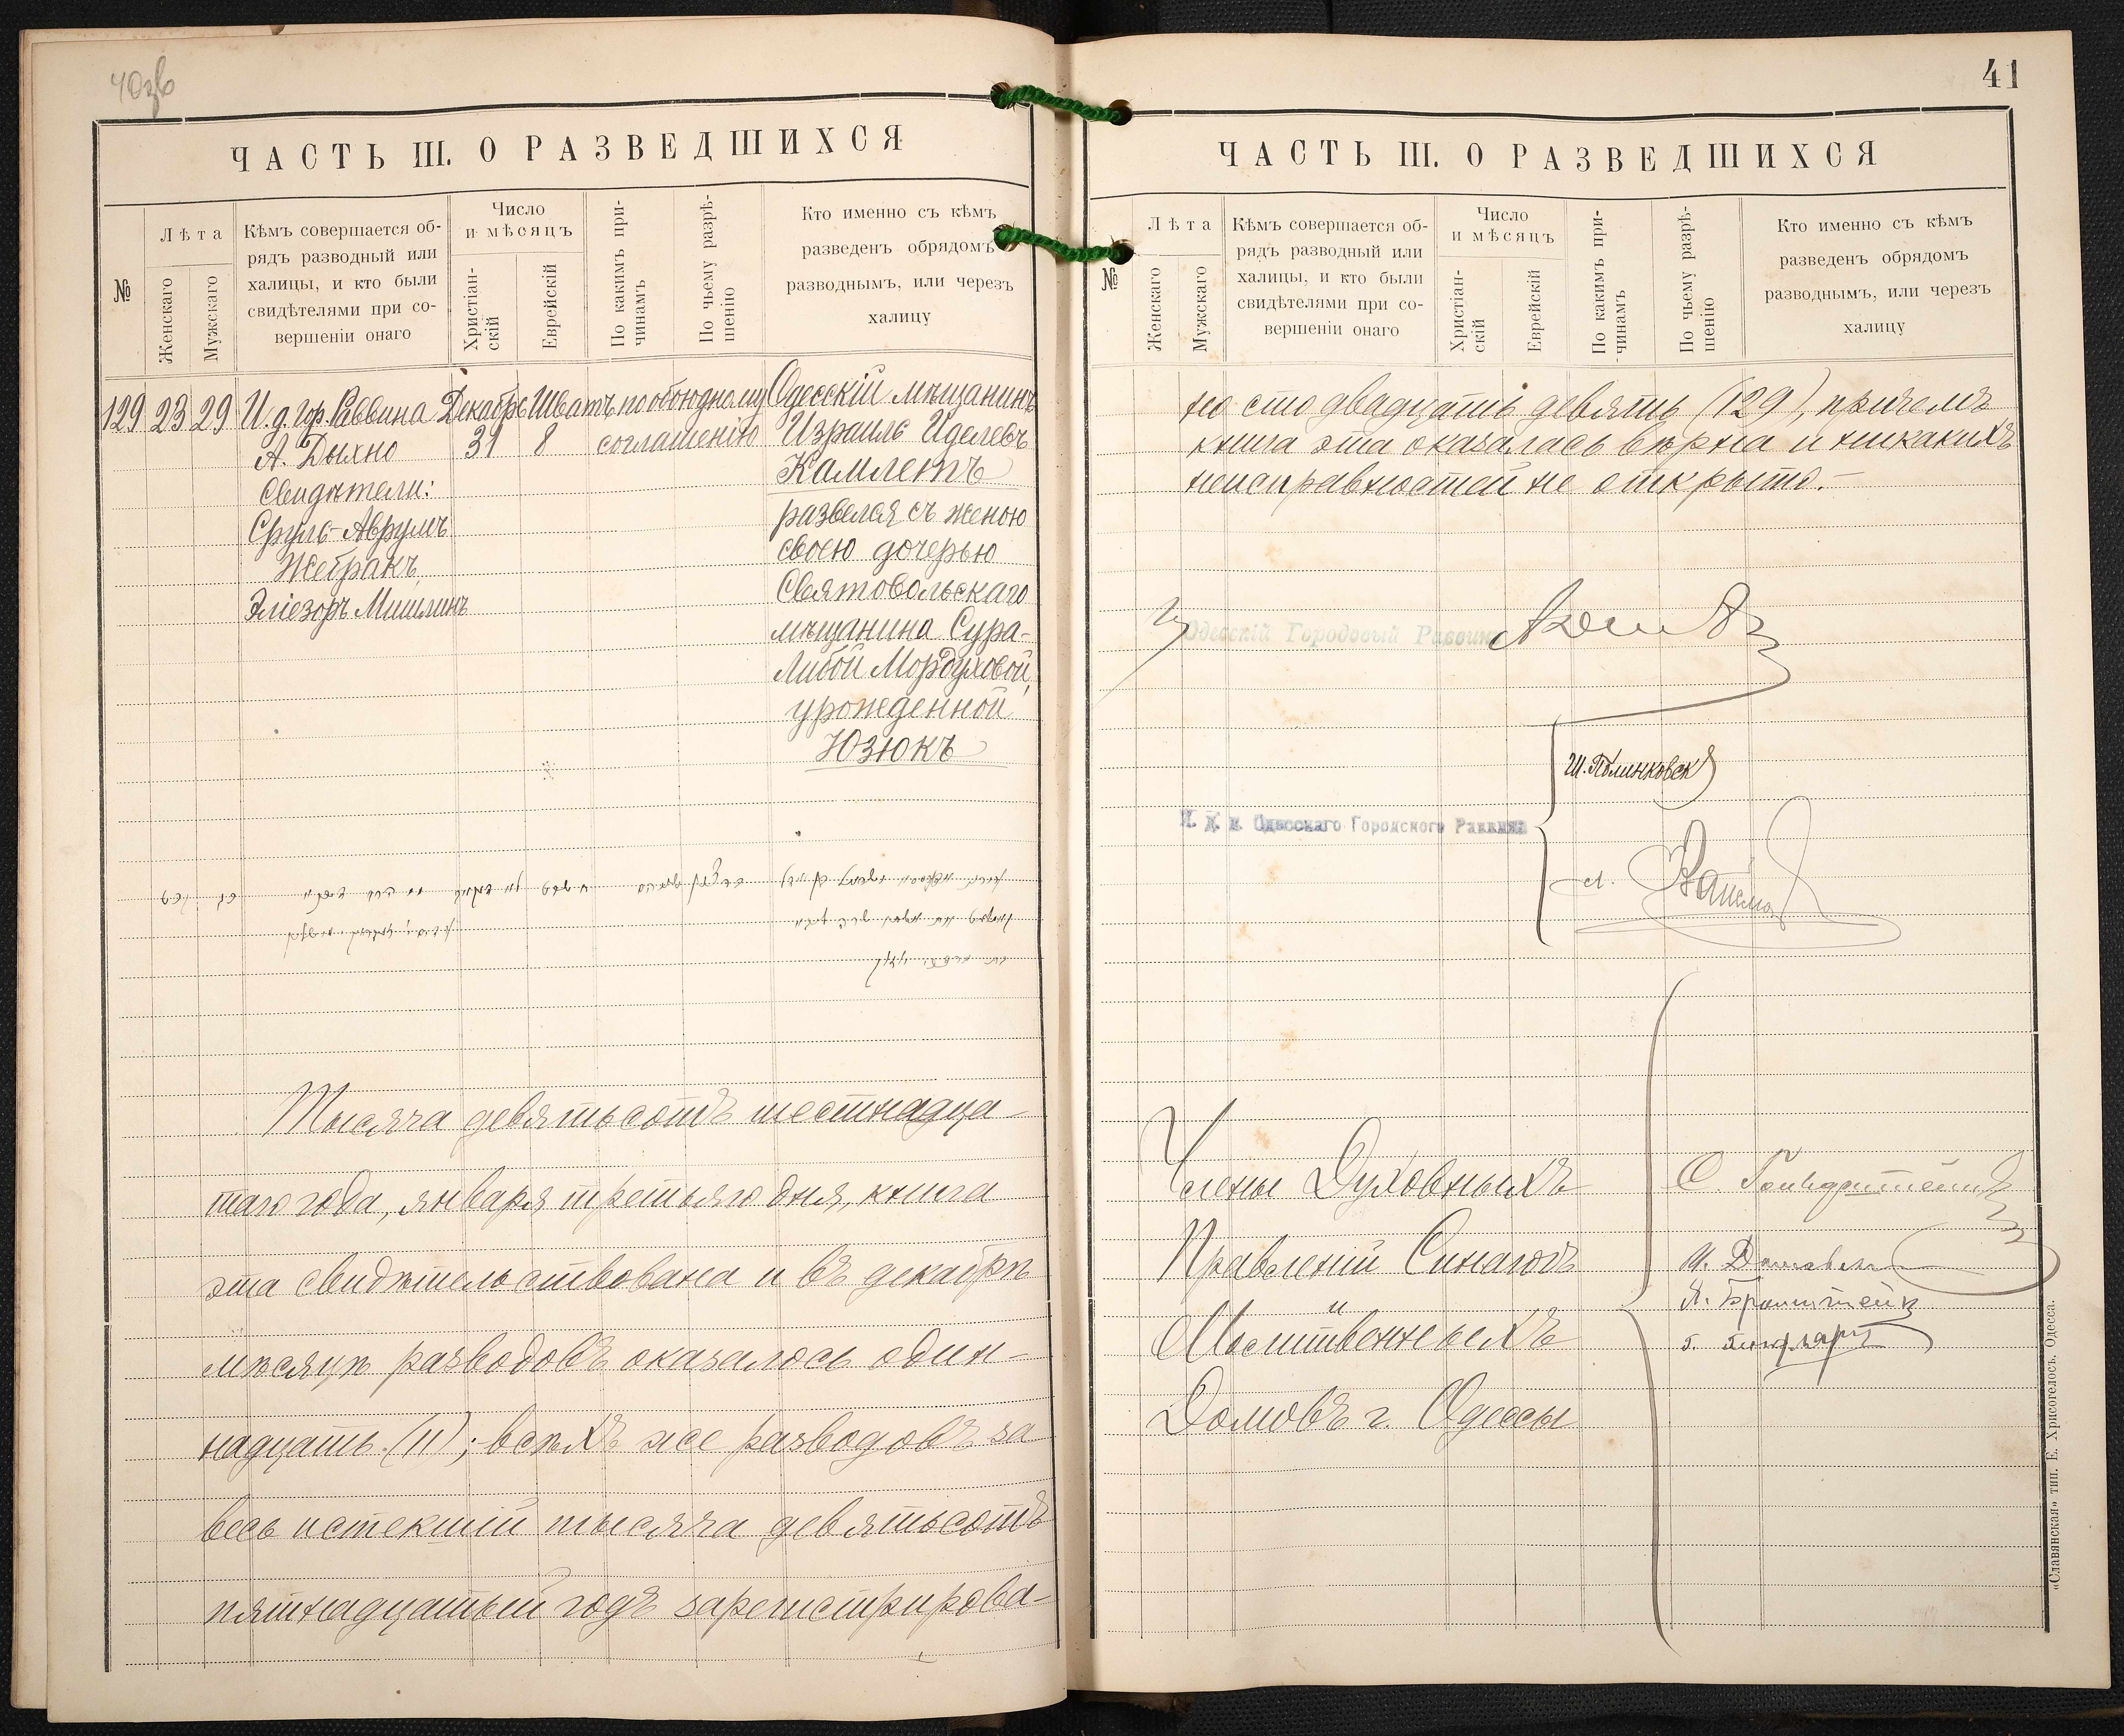 40 зв
ЧАСТЬ III. О РАЗВЕДШИХСЯ
№
Лѣта
Женскаго
Мужскаго
Кѣмъ совершается об-
рядъ разводный или
халицы, и кто были
свидѣтелями при со-
вершеніи онаго
Число
и мѣсяцъ
Христіан-
скій
Еврейскій
По какимъ при-
чинамъ
По чьему разрѣ-
шенію
Кто именно съ кѣмъ
разведенъ обрядомъ
разводнымъ, или черезъ
халицу
129 23 29 И. д. Гор. Раввина Декабрь Шватъ по обоюдному Одесскій мѣщанинъ
А. Дыхно 31 8 соглашенію Израиль Иделевъ
Свидѣтели: Камлетъ
Сруль-Аврумъ развелся съ женою
Жебракъ, своею дочерью
Эліезоръ Мишлинъ Святовольскаго
мѣщанина Сура-
Либой Мордуховой,
урожденной
Юзюкъ
Тысяча девятьсотъ шестнадца-
таго года, января третьяго дня, книга
эта свидѣтельствована и въ декабрѣ
мѣсяцѣ разводовъ оказалось один-
надцать (11); всѣхъ же разводовъ за
весь истекшій тысяча девятьсотъ
пятнадцатый годъ зарегистрирова-
41
ЧАСТЬ III. О РАЗВЕДШИХСЯ
№
Лѣта
Женскаго
Мужскаго
Кѣмъ совершается об-
рядъ разводный или
халицы, и кто были
свидѣтелями при со-
вершеніи онаго
Число
и мѣсяцъ
Христіан-
скій
Еврейскій
По какимъ при-
чинамъ
По чьему разрѣ-
шенію
Кто именно съ кѣмъ
разведенъ обрядомъ
разводнымъ, или черезъ
халицу
но сто двадцать девять (129), причемъ
книга эта оказалась вѣрна и никакихъ
неисправностей не открыто.-
Одесскій Городовый Раввинъ
Ш. Полинковск
И. д. Одесскаго Городского Раввина
Члены Духовныхъ
Правленій Синагогъ
и
Молитвенныхъ
Домовъ г. Одессы
О. Гольдштейнъ
Я. Бронштейн
«Славянская» тип. Е. Хрисогелосъ. Одесса.